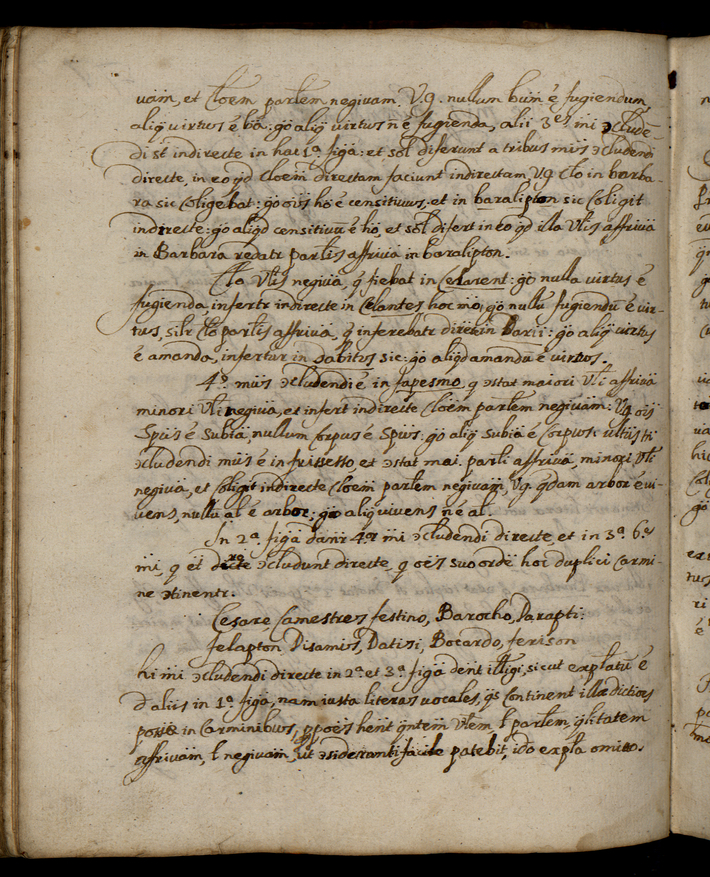 uam, et Cloem parlem negiuam. V.g. nullum bum é fugiendum,
aliq̃ virtus é ba: go aliq̃ virtus ñ é fugienda, alii 3es mi ɔclude
di st indirecte in hac 1ª figa: et sol diferunt a tribus miis ɔcludendi
directe, in eo qd Cloem directam faciunt indirectam, Vg. Clo in barba-
ra sic Coligebat: go oiis ho é censitiuus: et in baralipton sic Coligit
indirecte: go aliqd censitiuu é ho, et sol difert in eo qd illa Vlis affriua
in Barbara redatr parlis affriua in baralipton.
Clo Vlis negiua, q̃ fiebat in Celarent: go nulla virtus é
fugienda, infertr indirecte in Celantes hoc mo, go nullu fugiendu é vir-
tus, silr Clo parlis affriua, q̃ inferebatr direte in Darii: go aliq̃ virtus
é amanda, infertur in dabitus sic: go aliqd amandu é virtus.
4.º miis ɔcludendi é in fapesmo, q ɔstat maiori Vli affriua
minori Vli negiua, et infert indirecte Cloem parlem negiuam: Vg oiis
Spiis é Subia, nullum Corpus é Spiis: go aliq̃ Subia é Corpus: ultiis
ɔcludendi miis é in frisesso, et ɔstat mai. parli affriua, minori Vli
negiua, et Coligit indirecte Cloem parlem negiuam, Vg. qdam arbor é vi-
vens, nullu al é arbor: go aliq vivens ñ é al.
In 2ª figa danr 4or mi ɔcludendi directe, et in 3ª. 6es
mi, q et directe ɔcludunt directe, q oes suo orde hoc duplici Carmi-
ne ɔtinentr.
Cesare, Camestres, festino, Barocho, Darapti:
felapton, Disamis, Datisi, Bocardo, ferison
hi mi ɔcludendi directe in 2ª et 3ª figa dent illigi, sicut explatu é
d aliis in 1ª figa, nam iusta literas vocales, qs Continent illæ dictioes
positæ in Carminibus, ppoes hent qntem Vlem l parlem, qlitatem
affriuam, l negiuam, ut ɔsideranti facile patebit, ido expla omitto.